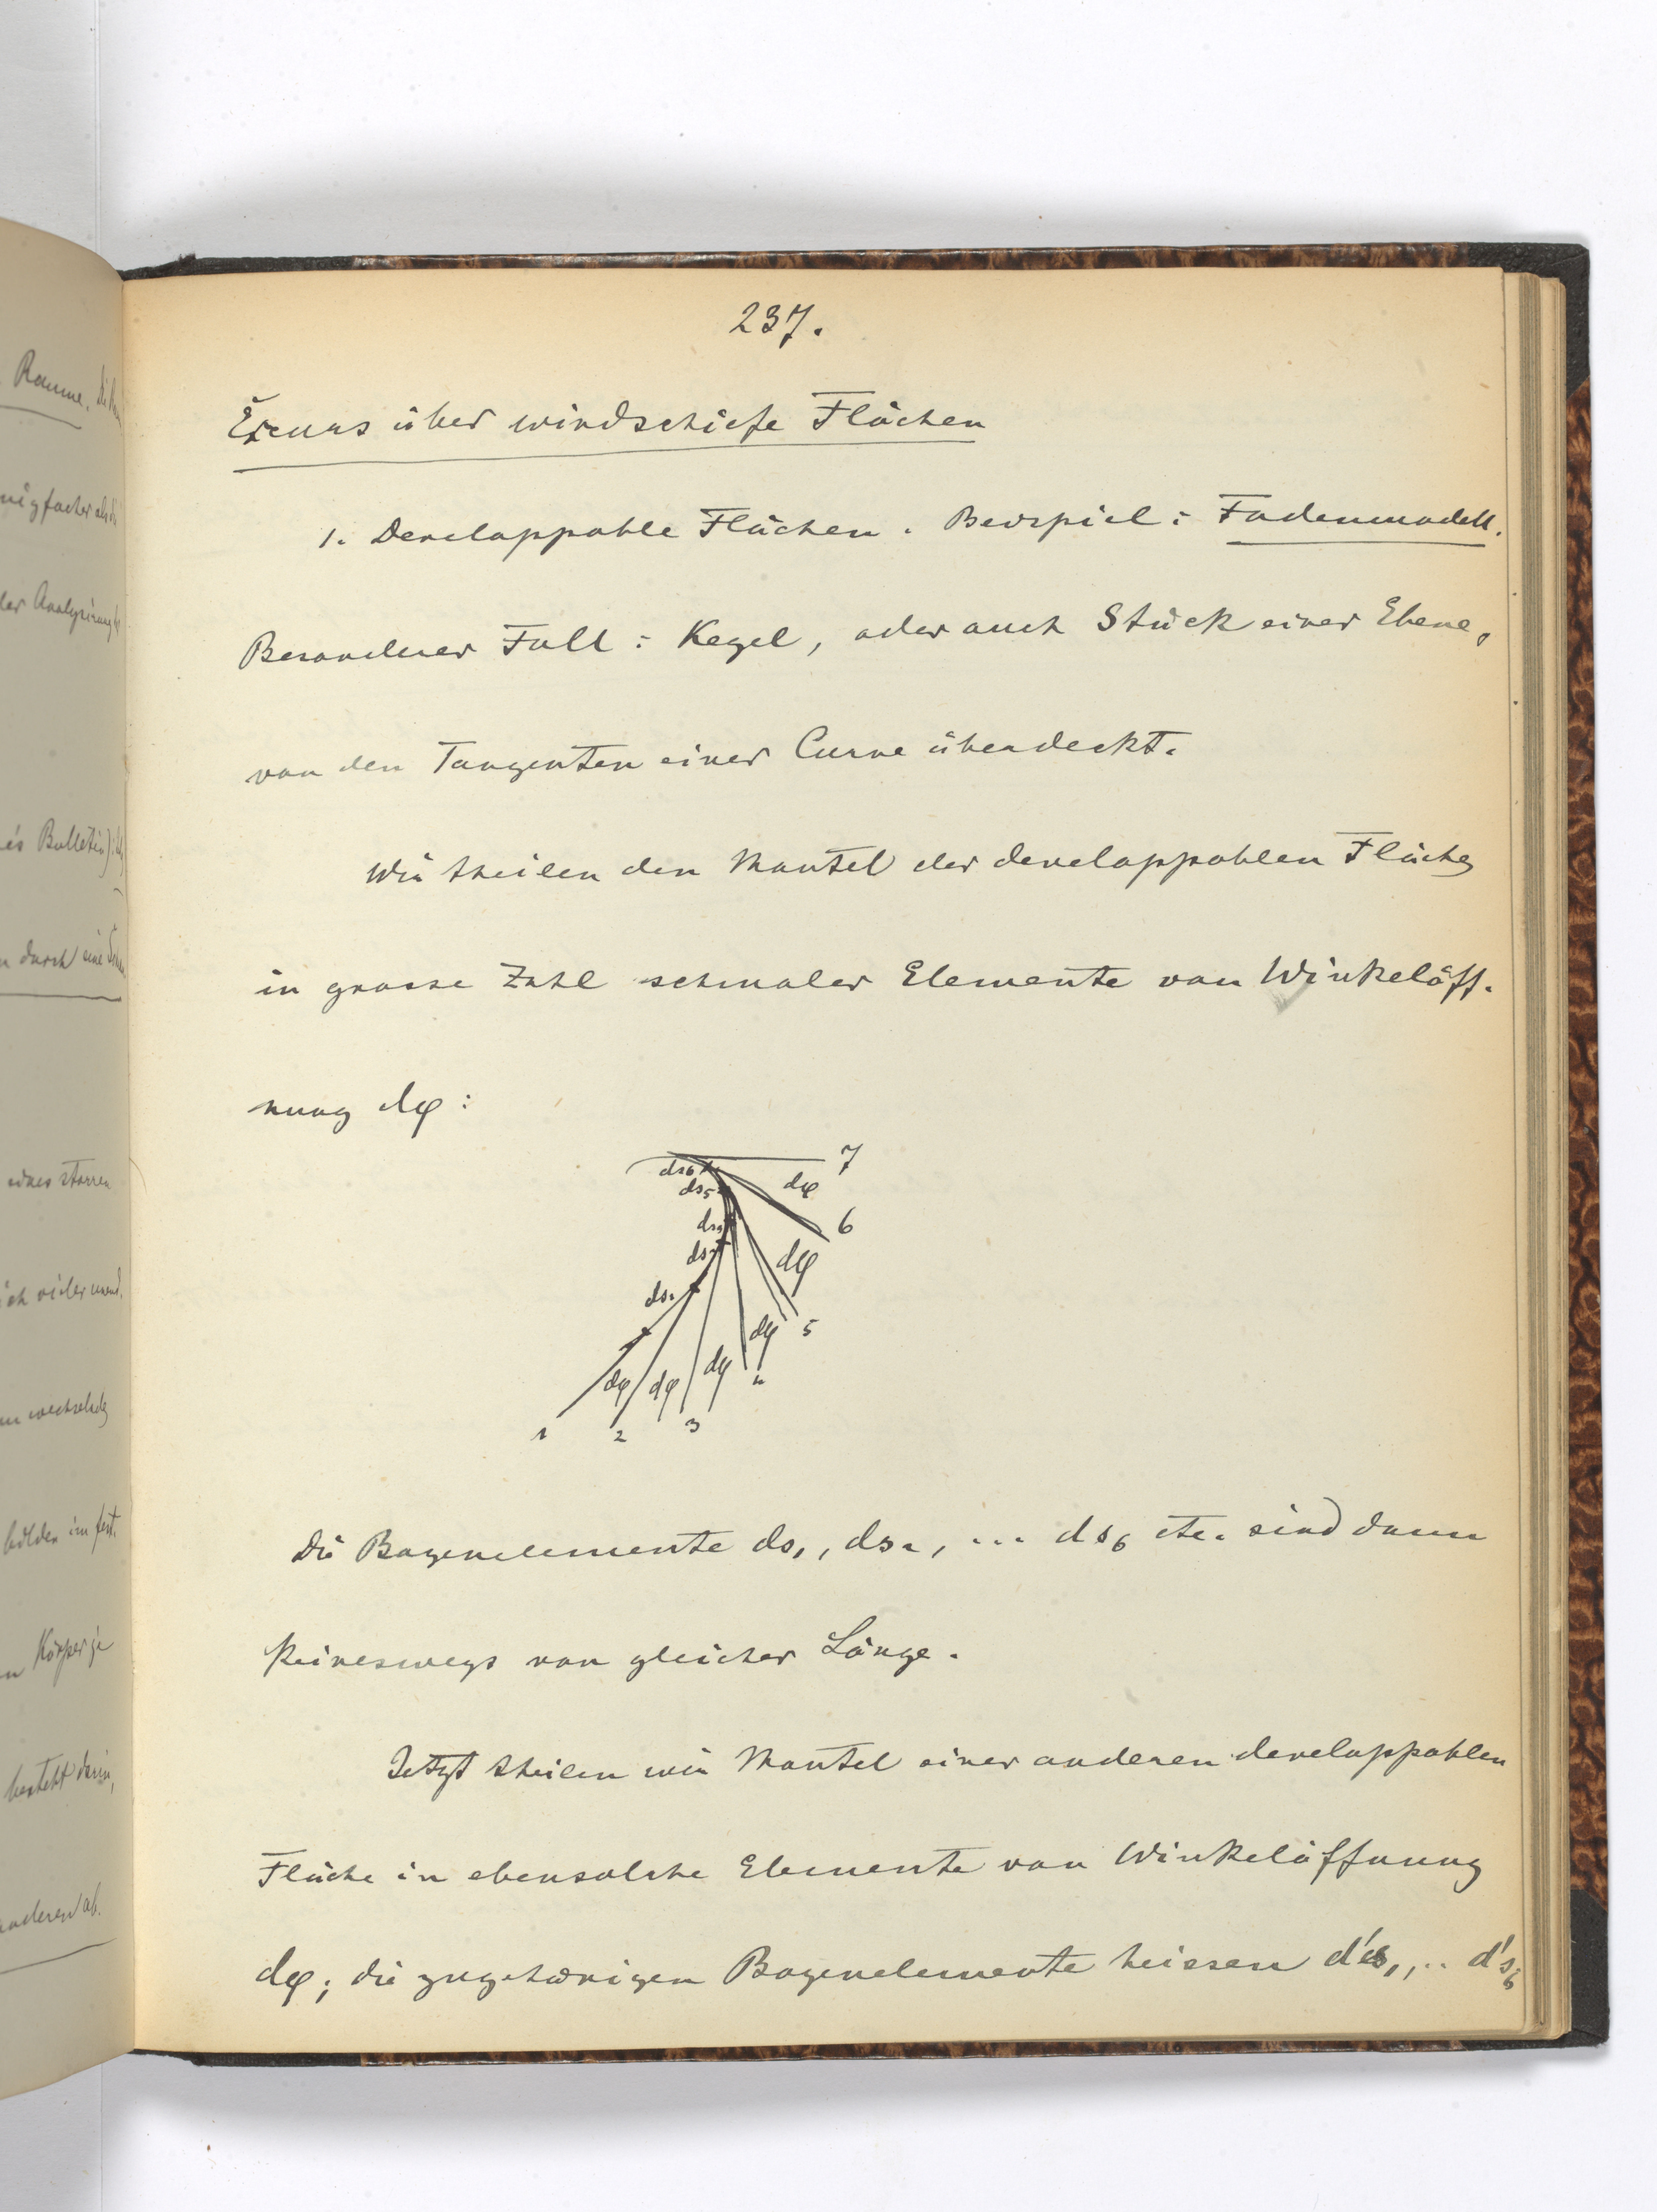 237.
Excurs über windschiefe Flächen
1. Developpable Flächen. Beispiel: Fadenmodell.
Besonderer Fall: Kegel, oder auch Stück einer Ebene,
von den Tangenten einer Curve überdeckt.
Wir theilen den Mantel der developpablen Fläche
in grosse Zahl schmaler Elemente von Winkelöff-
nung dφ:
7
ds6
dφ
ds5
6
ds3
ds2
dφ
ds1
dφ
5
dφ
dφ
dφ
4
1
2
3
Die Bogenelemente ds1, ds2, ... ds6 etc. sind dann
keineswegs von gleicher Länge.
Jetzt theilen wir Mantel einer anderen developpablen
Fläche in ebensolche Elemente von Winkelöffnung
dφ; die zugehörigen Bogenelemente heissen d's1,.. d's6
Raume.
der Analysirung
Bulletin)
durch eine
eines starren
ich vieler unend.
wechselnd
bilden im fest.
Körper je
besteht darin,
anderen ab.